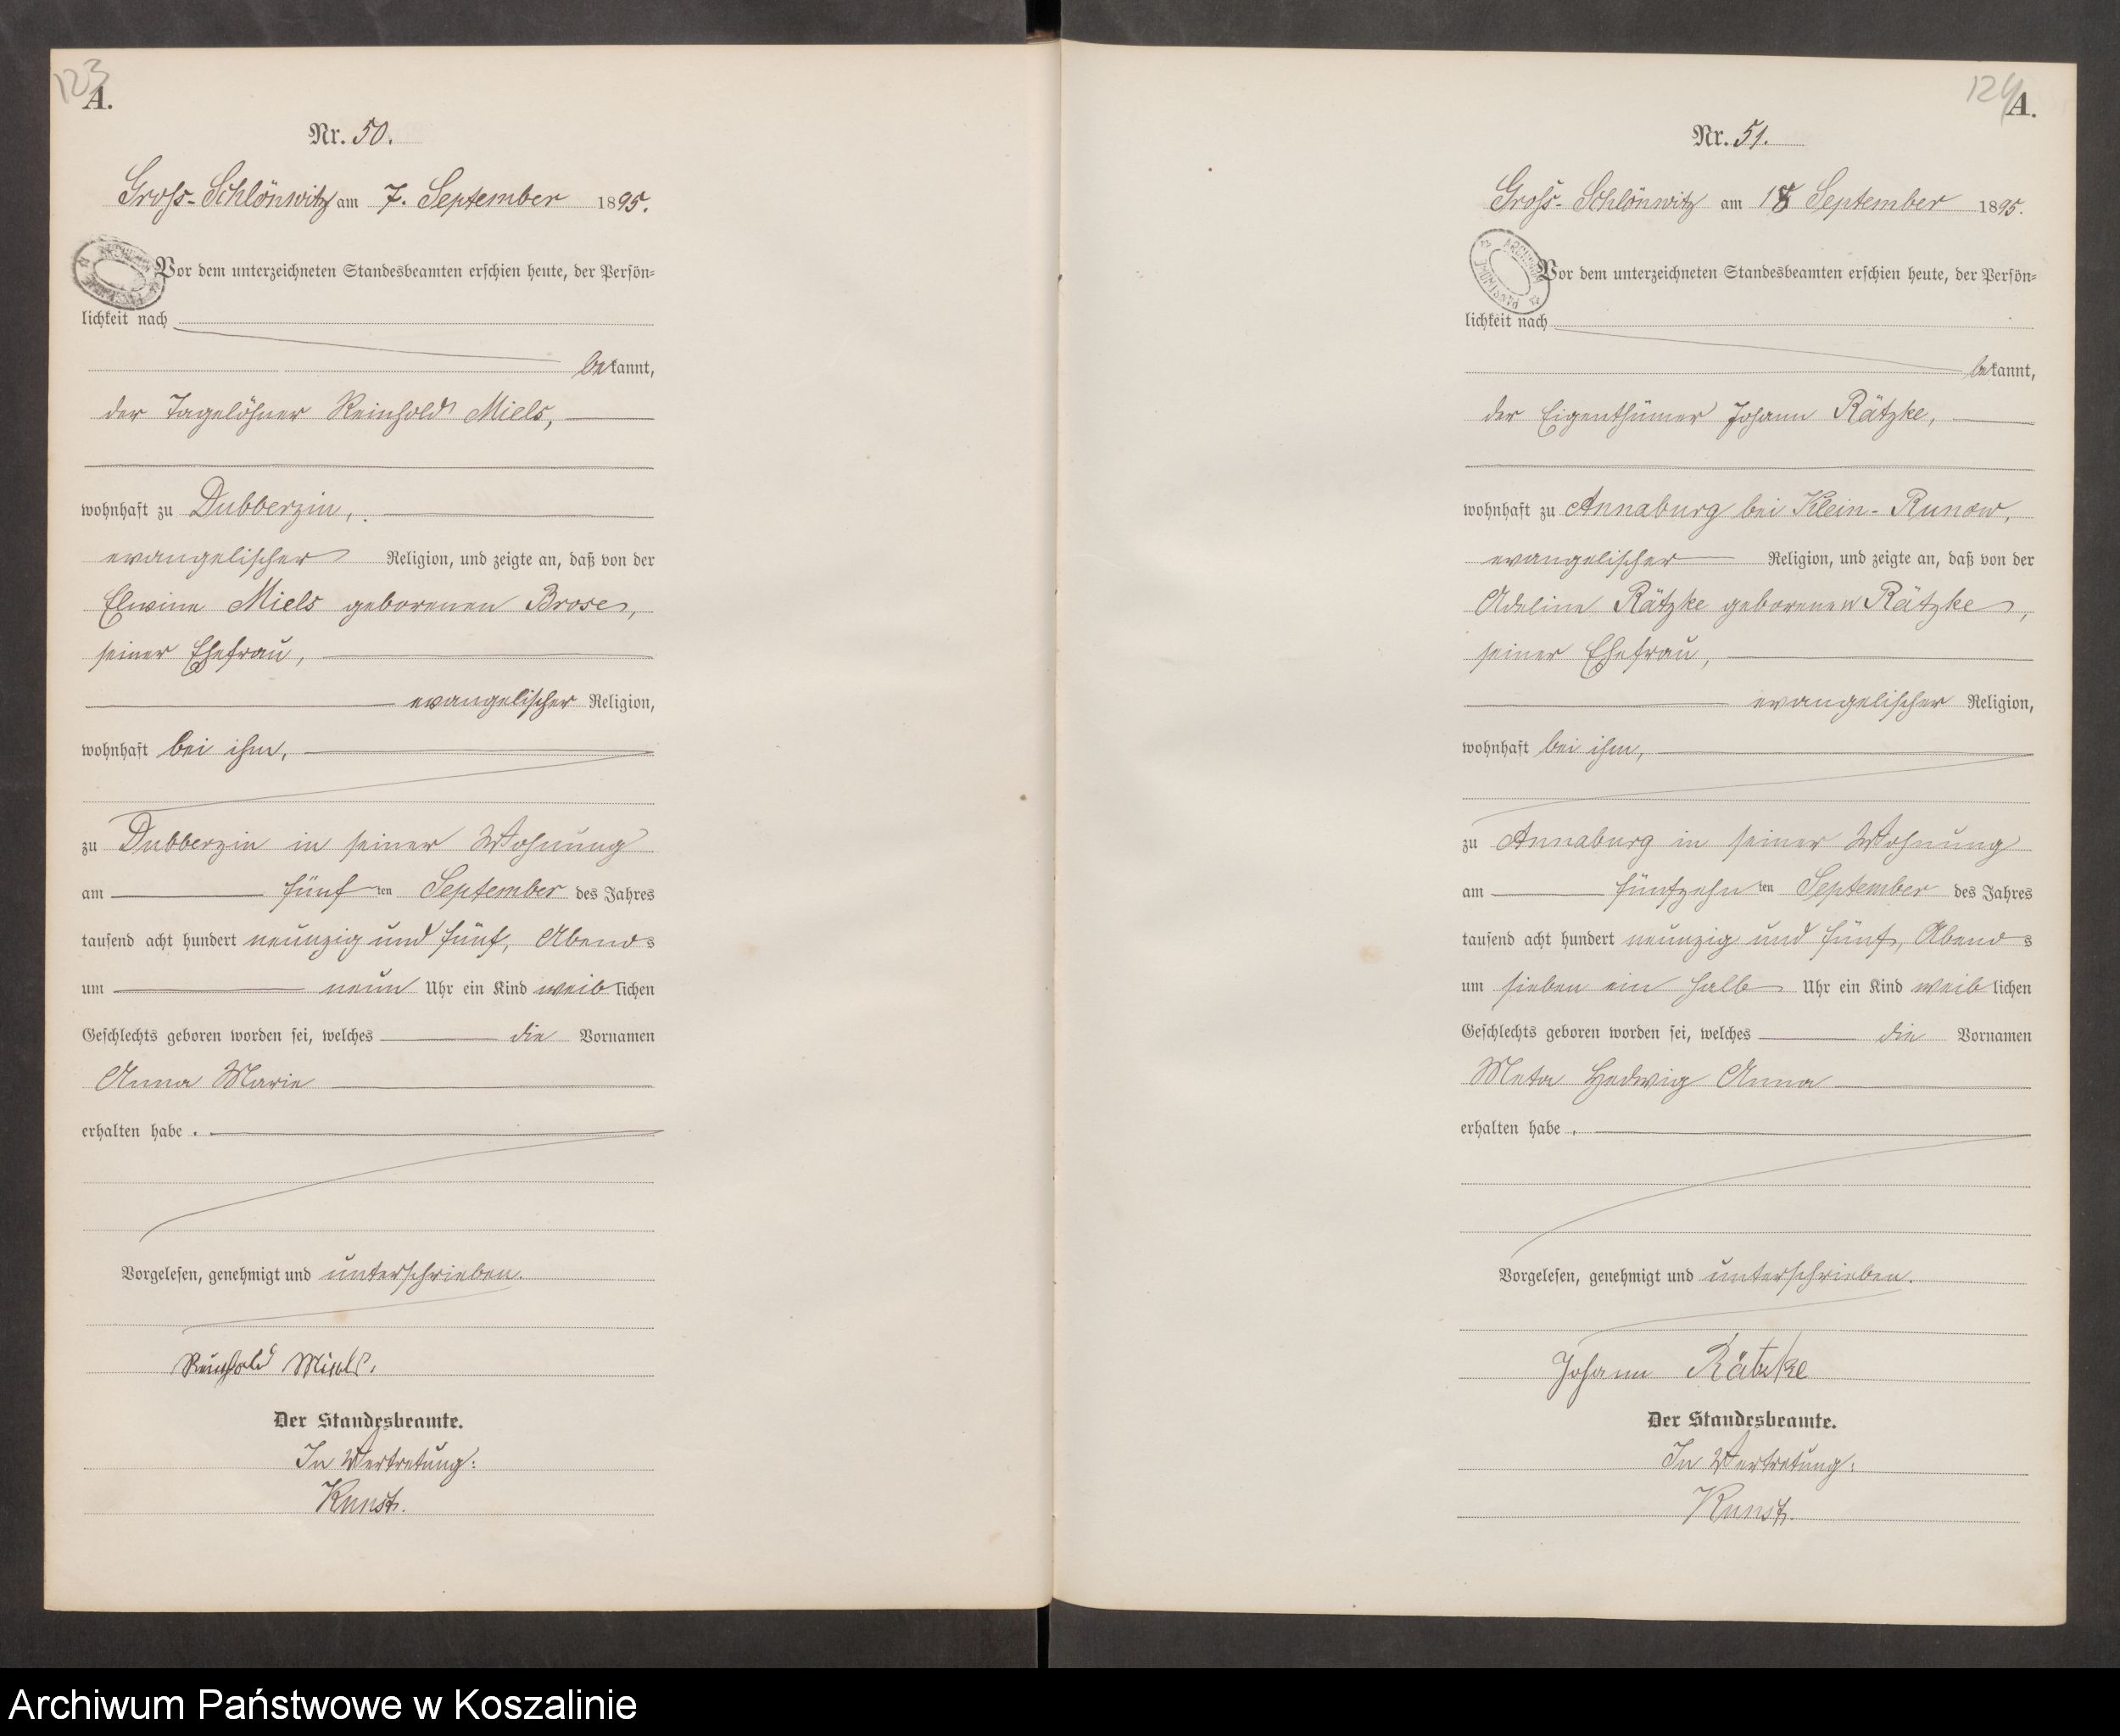 123
A.
Nr. 50.
Gross-Schlönwitz am 7. September 1895.
Vor dem unterzeichneten Standesbeamten erschien heute, der Persön=
lichkeit nach
bekannt,
der Tagelöhner Reinhold Miels,
wohnhaft zu Dubberzin,
evangelischer Religion, und zeigte an, daß von der
Elwine Miels geborenen Brose,
seiner Ehefrau,
evangelischer Religion,
wohnhaft bei ihm,
zu Dubberzin in seiner Wohnung
am fünf ten September des Jahres
tausend acht hundert neunzig und fünf, Abends
um neun Uhr ein Kind weiblichen
Geschlechts geboren worden sei, welches die Vornamen
Anna Marie
erhalten habe.
Vorgelesen, genehmigt und unterschrieben.
Reinhold Miels.
Der Standesbeamte.
In Vertretung:
Kunst.
124
A.
Nr. 51.
Gross-Schlönwitz am 18 September 1895.
Vor dem unterzeichneten Standesbeamten erschien heute, der Persön=
lichkeit nach
bekannt,
der Eigenthümer Johann Rätzke,
wohnhaft zu Annaburg bei Klein-Runow,
evangelischer Religion, und zeigte an, daß von der
Adeline Rätzke geborenen Rätzke,
seiner Ehefrau,
evangelischer Religion,
wohnhaft bei ihm,
zu Annaburg in seiner Wohnung
am fünfzehn ten September des Jahres
tausend acht hundert neunzig und fünf, Abends
um sieben ein halb Uhr ein Kind weiblichen
Geschlechts geboren worden sei, welches die Vornamen
Meta Hedwig Anna
erhalten habe.
Vorgelesen, genehmigt und unterschrieben.
Johann Rätzke
Der Standesbeamte.
In Vertretung:
Kunst.
Archiwum Państwowe w Koszalinie